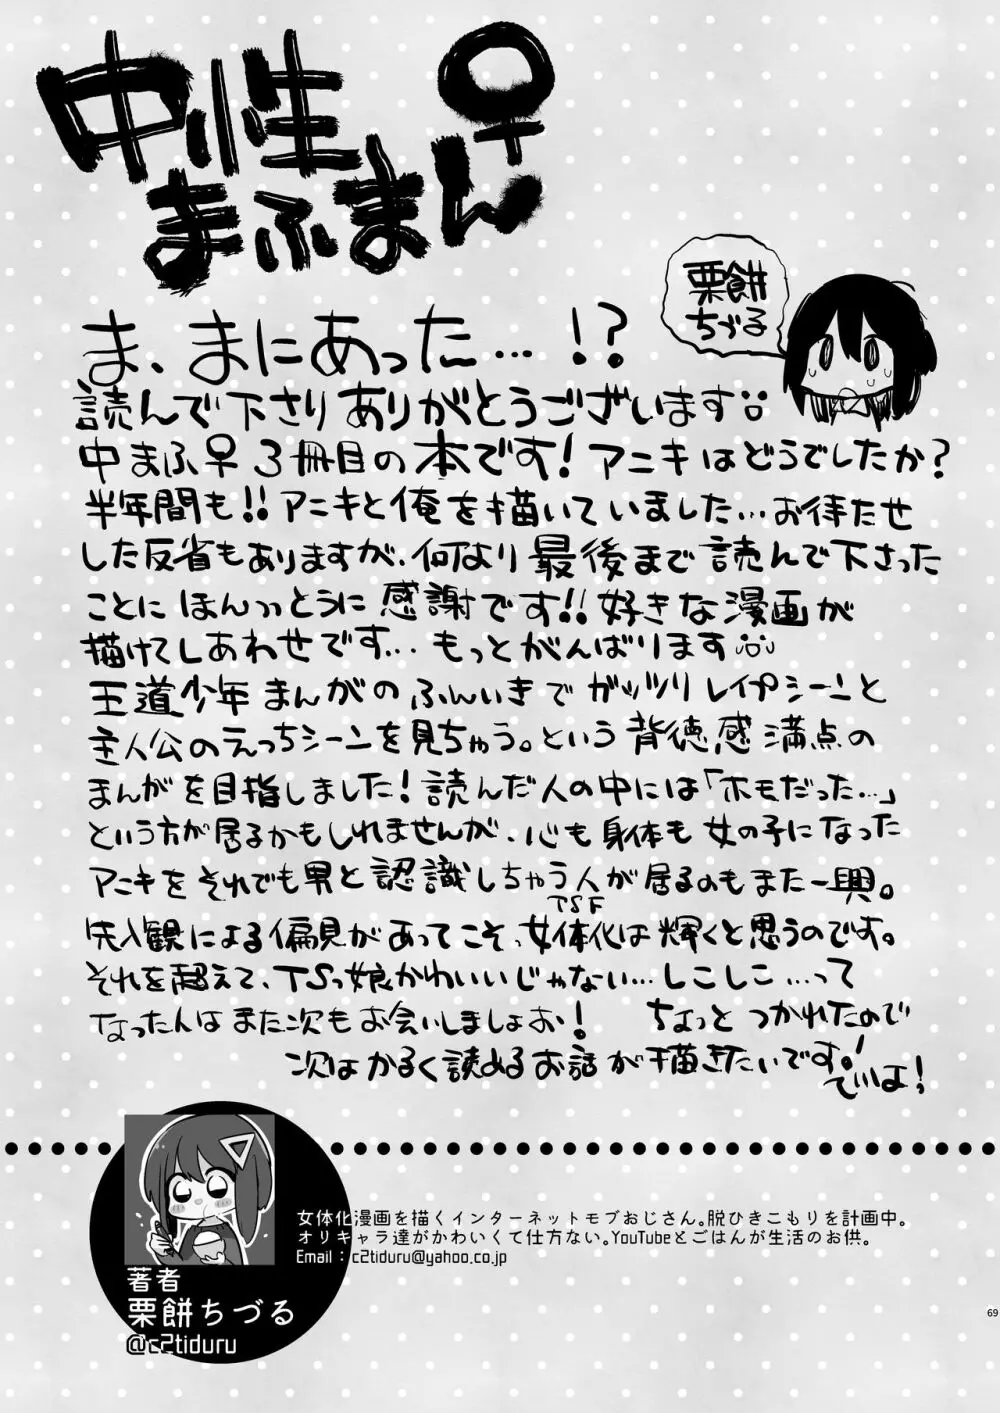 中性
まふまん♀
栗餅
ちづる
ま、まにあった…!?
読んで下さりありがとうございます
中まふ♀3冊目の本です!アニキはどうでしたか?
半年間も!!アニキと俺を描いていました…お待たせ
した反省もありますが、何より最後まで読んで下さった
ことにほんっっとうに感謝です!!好きな漫画が
描けてしあわせです…もっとがんばります
王道少年まんがのふんいきでガッツリレイプシーンと
主人公のえっちシーンを見ちゃう。という背徳感満点の
まんがを目指しました!読んだ人の中には「ホモだった…」
という方が居るかもしれませんが、心も身体も女の子になった
アニキをそれでも男と認識しちゃう人が居るのもまた一興。
先入観による偏見があってこそ、女体化は輝くと思うのです。
TSF
それを超えて、TSっ娘かわいいじゃない…しこしこ…って
なったんはまた次もお会いしましょお!ちょっとつかれたので
次はかるく読めるお話が描きたいです!
でいよ!
女体化漫画を描くインターネットモブおじさん。脱ひきこもりを計画中。
オリキャラ達がかわいくて仕方ない。YouTubeとごはんが生活のお供。
Email : c2tiduru@yahoo.co.jp
著者
栗餅ちづる
@c2tiduru
69